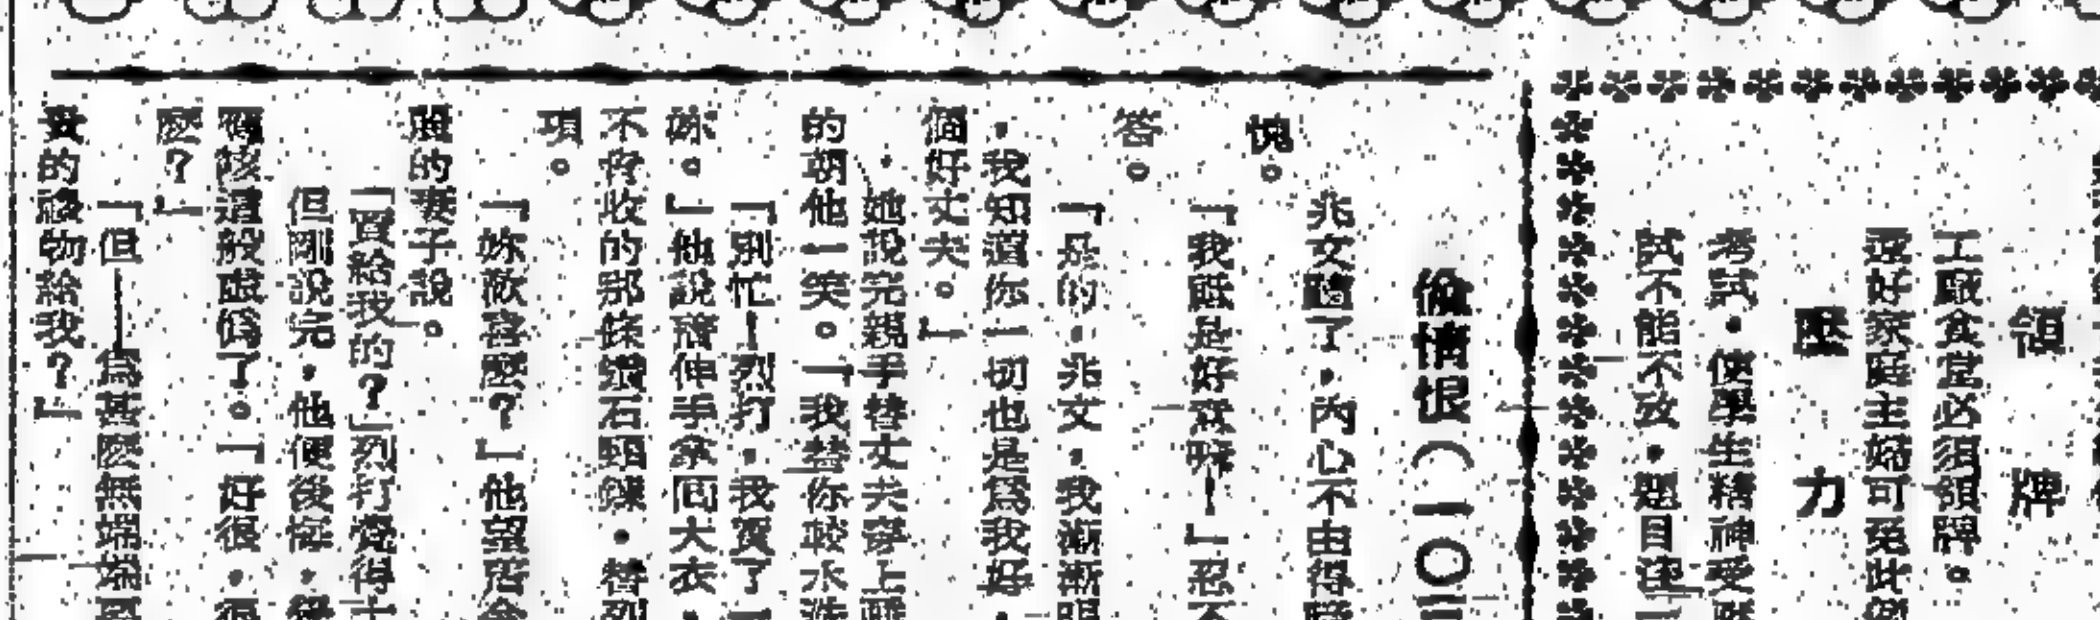 領牌
工廠食堂必須領牌。
還好家庭主婦可免此例
壓力
考試，使學生精神受壓
試不能不改，題目注一
偷情恨（一〇三
兆文聽了，內心不由得
愧。
「我既是好意嘛！」忍不
答。
「是的，兆文，我漸漸明
，我知道你一切也是為我好，
個好丈夫。」
，她說完親手替丈夫穿上
的朝他一笑。「我替你較水洗
「別忙！烈打，我買了一
妳。」他說齊伸手拿回大衣，
不會收的那條鑽石頸鍊，替烈
項。
「妳歡喜麼？」他望
的妻子說。
「買給我的？」烈打覺得十
但剛說完，他便後悔，
應該這般虛偽了。「好很，很
麼？」
「但——為甚麼無端端買
貴的禮物給我？」